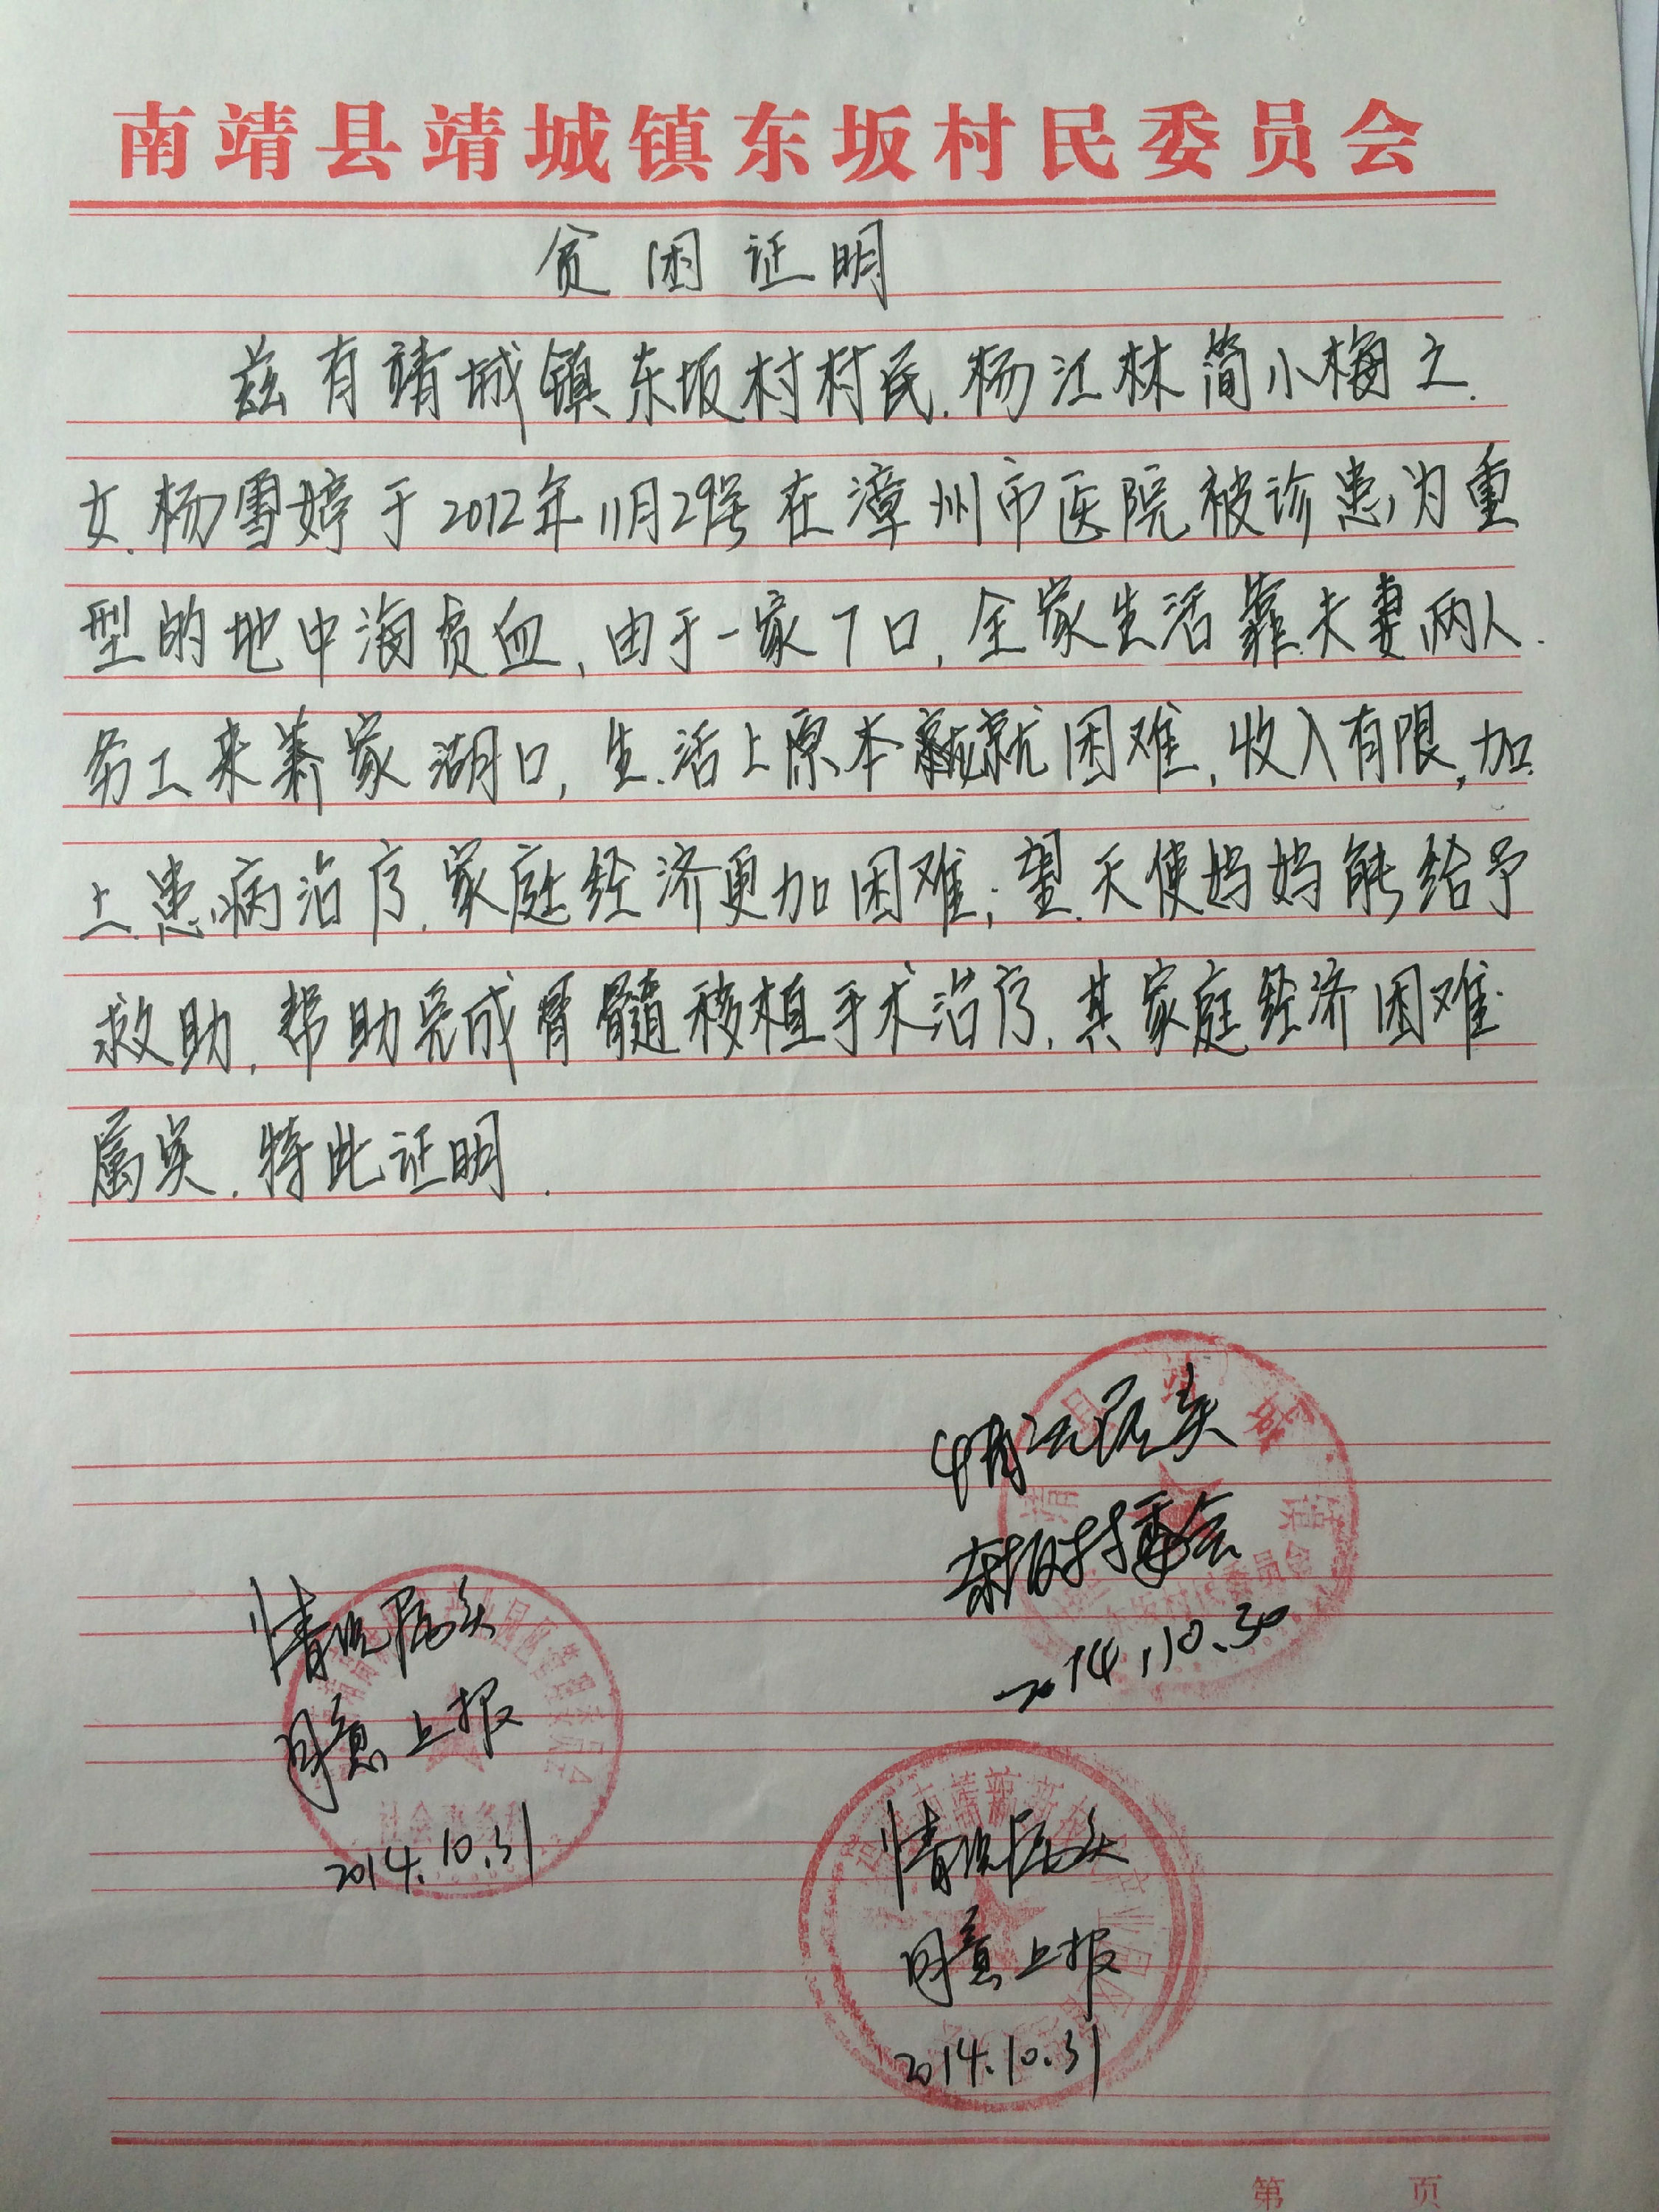 南靖县靖城镇东坂村民委员会
贫困证明
兹有靖城镇东坂村村民.杨江林简小梅之.
女.杨雪婷于2012年11月29号在漳州市医院被诊患为重
型的地中海贫血,由于一家7口,全家生活靠夫妻两人.
务工来养家湖口,生活上原本就困难,收入有限,加
上患病治疗.家庭经济更加困难;望天使妈妈能给予
救助,帮助完成骨髓移植手术治疗,其家庭经济困难
属实.特此证明.
情况属实
东坂村委会
2014.10.30
情况属实
同意上报
2014.10.31
情况属实
同意上报
2014.10.31
第 页